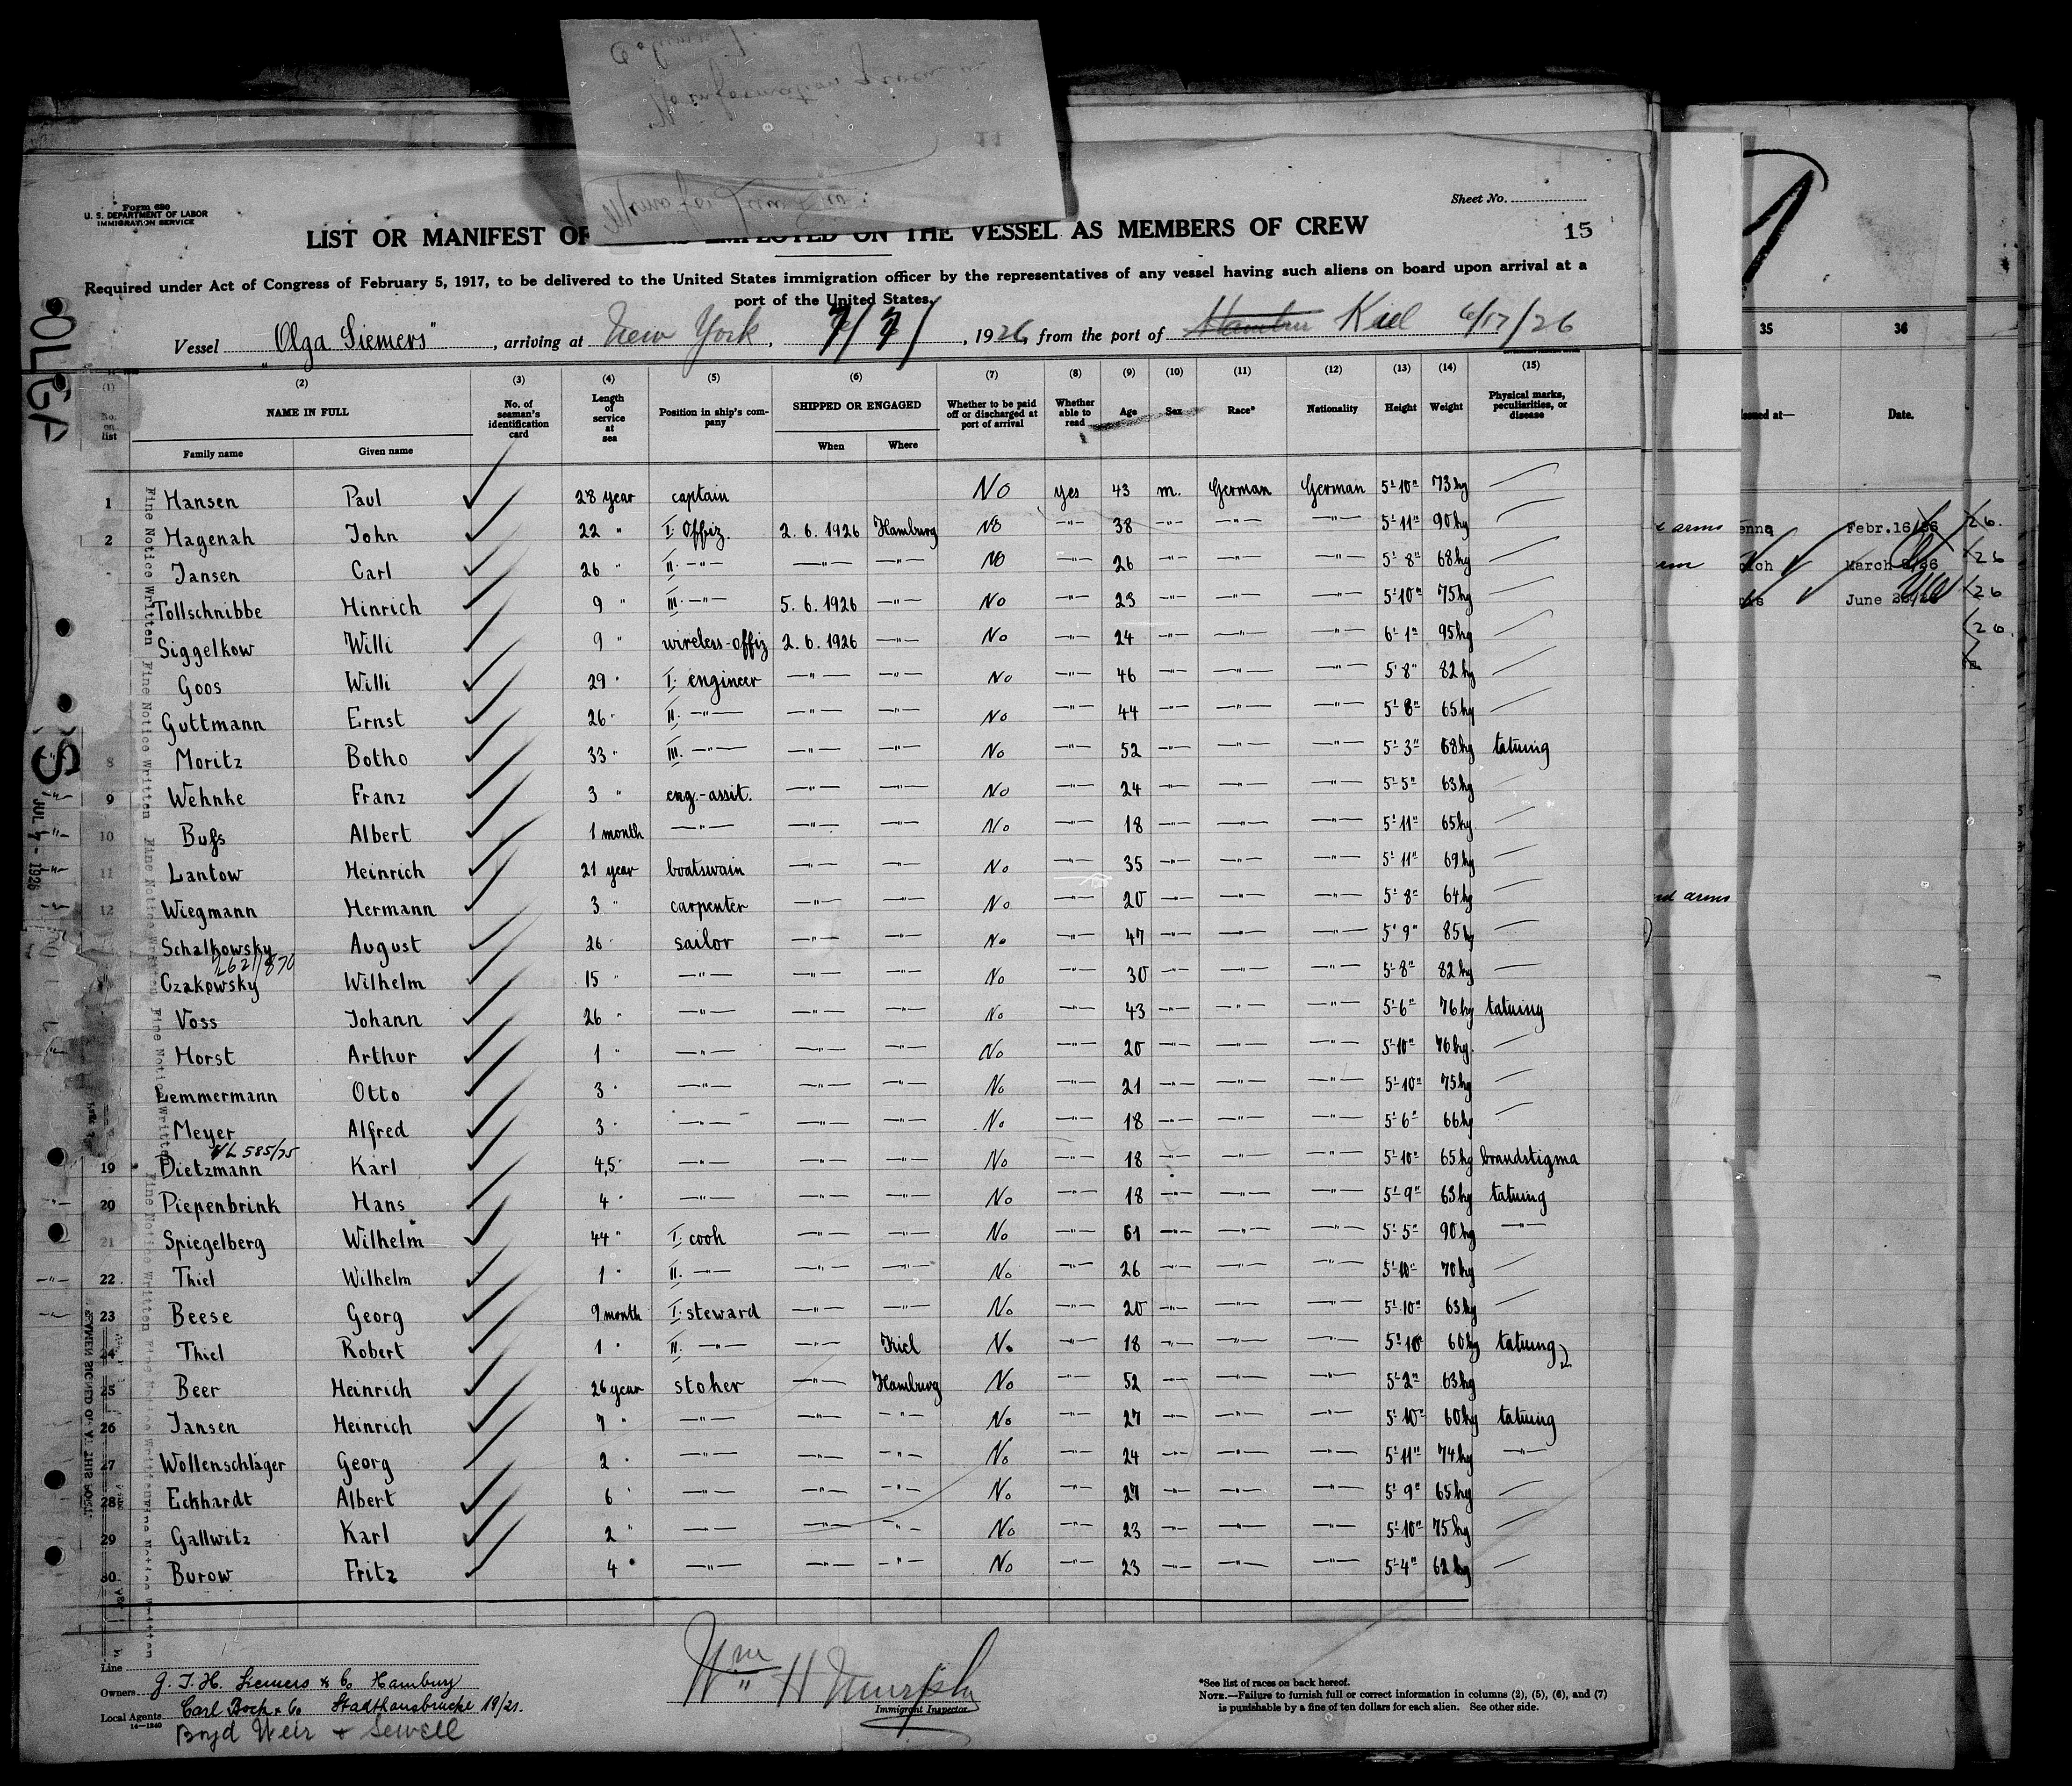 Form 680
U. S. DEPARTMENT OF LABOR
IMMIGRATION SERVICE
Sheet No.
15
LIST OR MANIFEST OF EMPLOYED ON THE VESSEL AS MEMBERS OF CREW
Required under Act of Congress of February 5, 1917, to be delivered to the United States immigration officer by the representatives of any vessel having such aliens on board upon arrival at a
port of the United States.
Vessel "Olga Siemers", arriving at New York, 7/7/, 1926, from the port of Kiel 6/17/26
(1) (2) (3) (4) (5) (6) (7) (8) (9) (10) (11) (12) (13) (14) (15)
No. on list NAME IN FULL No. of seaman's identification card Length of service at sea Position in ship's company SHIPPED OR ENGAGED Whether to be paid off or discharged at port of arrival Whether able to read Age Sex Race* Nationality Height Weight Physical marks, peculiarities, or disease
Family name Given name When Where
35 36
Issued at— Date.
1 Hansen Paul 28 year captain No yes 43 m. German German 5'10" 73kg
2 Hagenah John 22 " I. Offiz. 2. 6. 1926 Hamburg No —"— 38 —"— —"— —"— 5'11" 90kg
Jansen Carl 26 " II. —"— —"— —"— No —"— 26 —"— —"— —"— 5'8" 68kg
Tollschnibbe Hinrich 9 " III. —"— 5. 6. 1926 —"— No —"— 23 —"— —"— —"— 5'10" 75kg
Siggelkow Willi 9 " wireless-offiz 2. 6. 1926 —"— No —"— 24 —"— —"— —"— 6'1" 95kg
Goos Willi 29 " I. engineer —"— —"— No —"— 46 —"— —"— —"— 5'8" 82kg
Guttmann Ernst 26 " II. —"— —"— —"— No —"— 44 —"— —"— —"— 5'8" 65kg
8 Moritz Botho 33 " III. —"— —"— —"— No —"— 52 —"— —"— —"— 5'3" 68kg tatuing
9 Wehnke Franz 3 " eng.-assit. —"— —"— No —"— 24 —"— —"— —"— 5'5" 63kg
10 Bußs Albert 1 month —"— —"— —"— No —"— 18 —"— —"— —"— 5'11" 65kg
11 Lantow Heinrich 21 year boatswain —"— —"— No —"— 35 —"— —"— —"— 5'11" 69kg
12 Wiegmann Hermann 3 " carpenter —"— —"— No —"— 20 —"— —"— —"— 5'8" 64kg
Schalkowsky August 26 " sailor —"— —"— No —"— 47 —"— —"— —"— 5'9" 85kg
2621/870
Czakowsky Wilhelm 15 " —"— —"— —"— No —"— 30 —"— —"— —"— 5'8" 82kg
Voss Johann 26 " —"— —"— —"— No —"— 43 —"— —"— —"— 5'6" 76kg tatuing
Horst Arthur 1 " —"— —"— —"— No —"— 20 —"— —"— —"— 5'10" 76kg
Lemmermann Otto 3 " —"— —"— —"— No —"— 21 —"— —"— —"— 5'10" 75kg
Meyer Alfred 3 " —"— —"— —"— No —"— 18 —"— —"— —"— 5'6" 66kg
585/75
19 Dietzmann Karl 4,5 " —"— —"— —"— No —"— 18 —"— —"— —"— 5'10" 65kg brandstigma
20 Piepenbrink Hans 4 " —"— —"— —"— No —"— 18 —"— —"— —"— 5'9" 63kg tatuing
21 Spiegelberg Wilhelm 44 " I. cook —"— —"— No —"— 61 —"— —"— —"— 5'5" 90kg —"—
22 Thiel Wilhelm 1 " II. —"— —"— —"— No —"— 26 —"— —"— —"— 5'10" 70kg
23 Beese Georg 9 month I. steward —"— —"— No —"— 20 —"— —"— —"— 5'10" 63kg
24 Thiel Robert 1 " II. —"— —"— Kiel No —"— 18 —"— —"— —"— 5'10" 60kg tatuing
25 Beer Heinrich 26 year stoker —"— Hamburg No —"— 52 —"— —"— —"— 5'2" 63kg
26 Jansen Heinrich 7 " —"— —"— —"— No —"— 27 —"— —"— —"— 5'10" 60kg tatuing
27 Wollenschläger Georg 2 " —"— —"— —"— No —"— 24 —"— —"— —"— 5'11" 74kg —"—
28 Eckhardt Albert 6 " —"— —"— —"— No —"— 27 —"— —"— —"— 5'9" 65kg
29 Gallwitz Karl 2 " —"— —"— —"— No —"— 23 —"— —"— —"— 5'10" 75kg
30 Burow Fritz 4 " —"— —"— —"— No —"— 23 —"— —"— —"— 5'4" 62kg
Fine Notice Written
OLGA S
JUL 7 - 1926
SEAMEN SIGNED ON AT THIS PORT
arms Febr. 16/26
March
June
arms
Line
Owners G. J. H. Siemers & Co Hamburg
Local Agents Carl Bock & Co Stadthausbrücke 19/21.
14—1240
Boyd Weir & Sewell
Wm H Murphy
Immigrant Inspector
*See list of races on back hereof.
NOTE.—Failure to furnish full or correct information in columns (2), (5), (6), and (7)
is punishable by a fine of ten dollars for each alien. See other side.